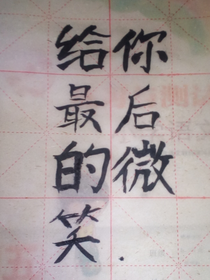 你后微.
给最的笑